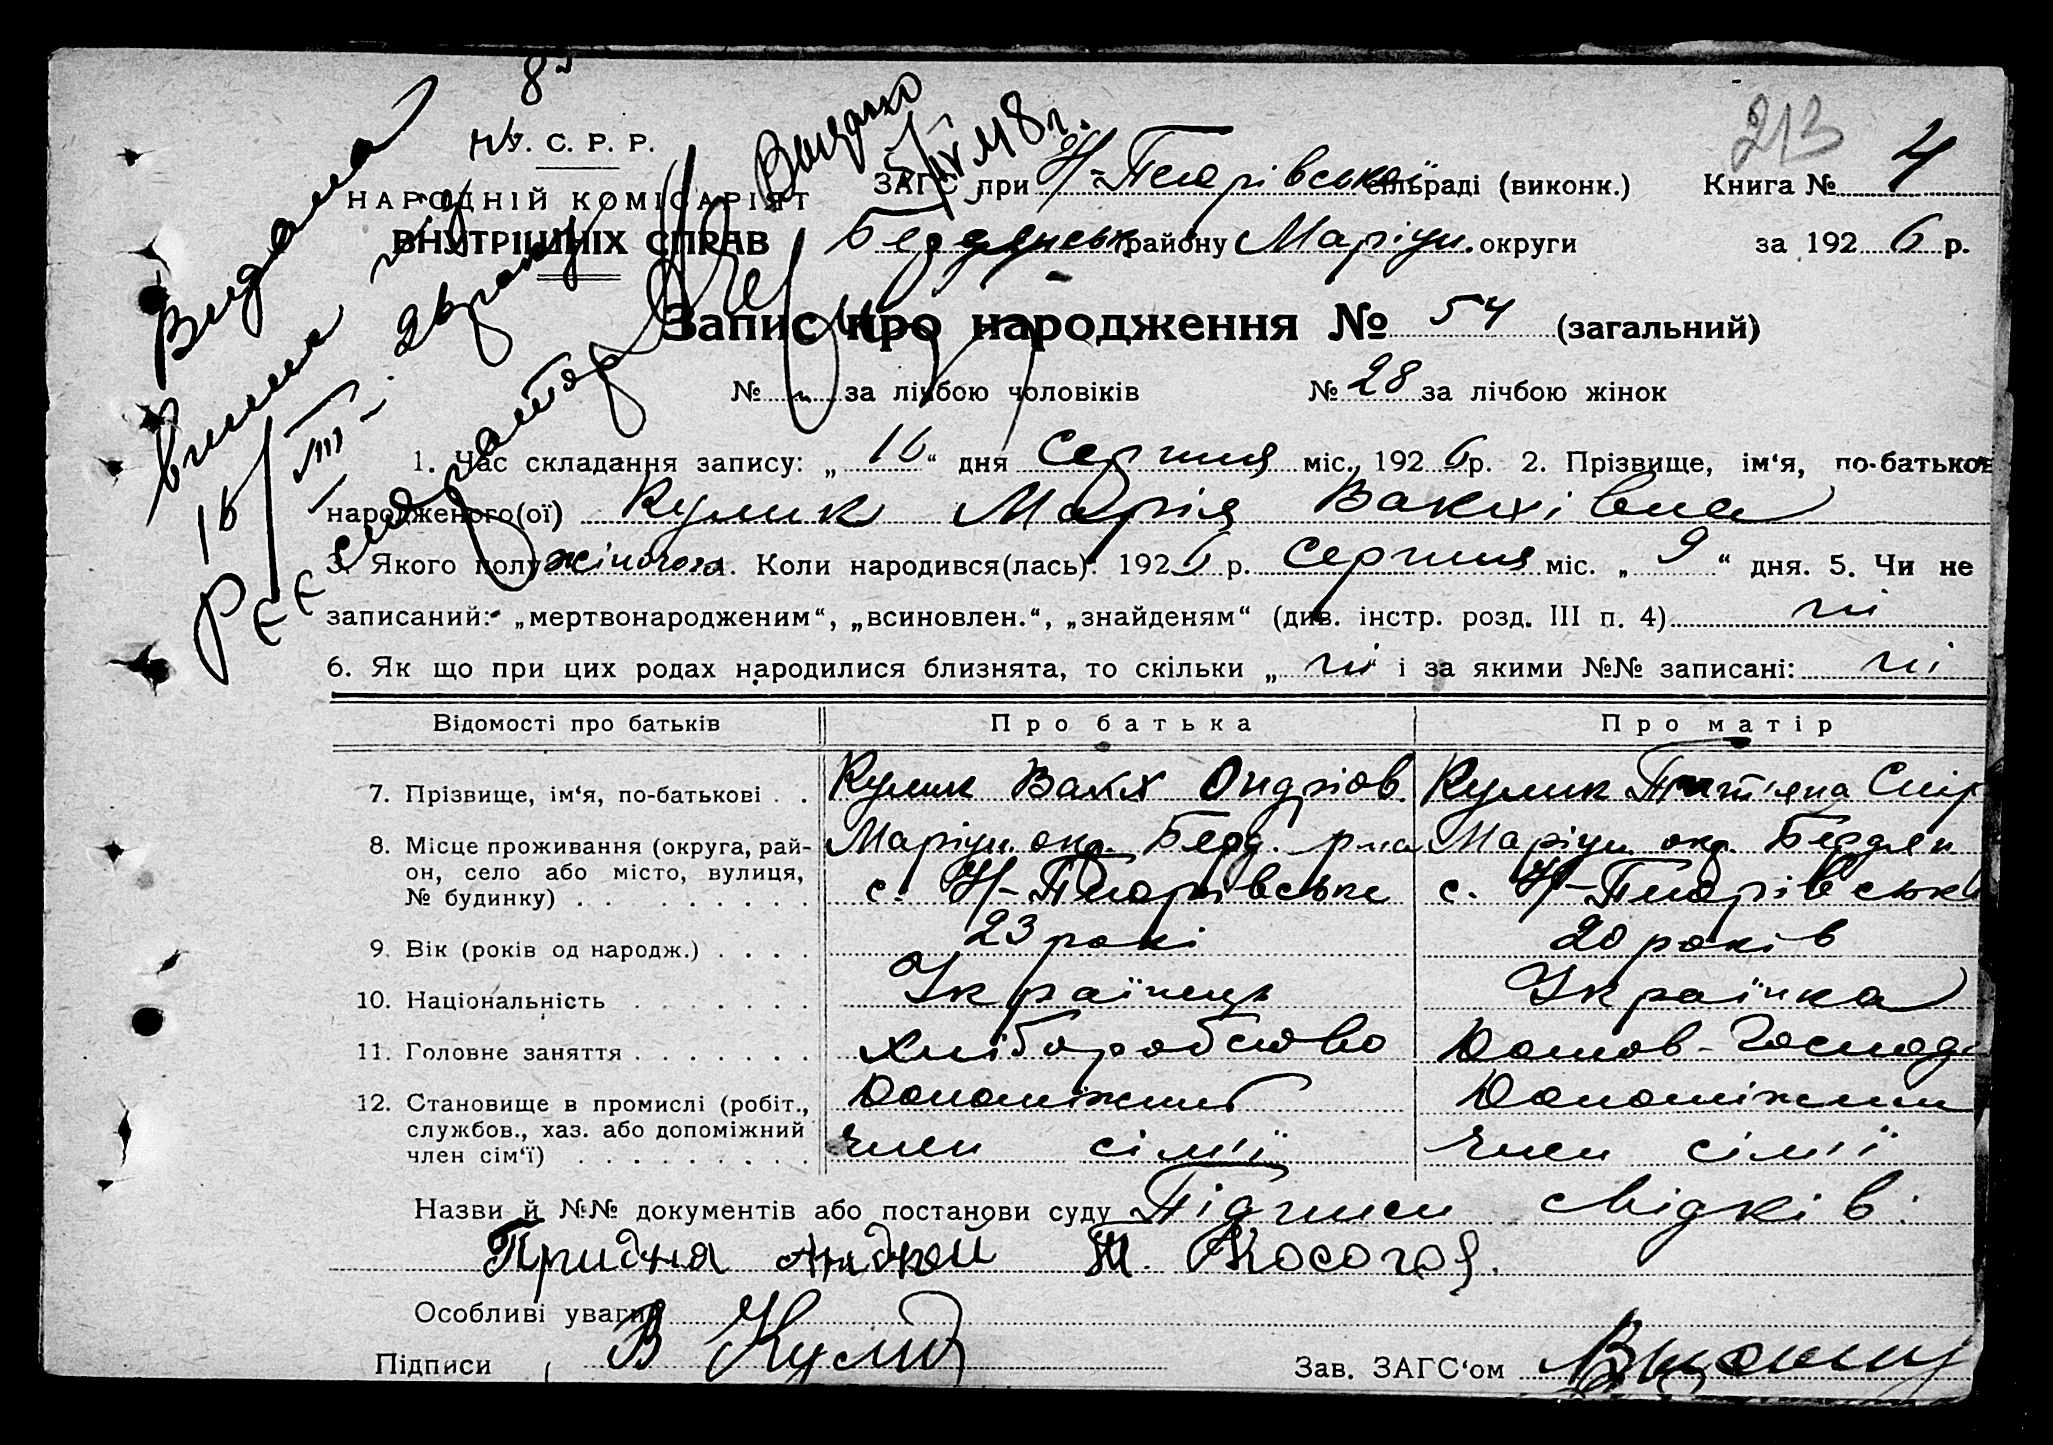 213
У. С. Р. Р.
НАРОДНІЙ КОМІСАРІЯТ
ВНУТРІШНІХ СПРАВ
Видана
Видано
ЗАГС при Н-Петрівської сільраді (виконк.) Книга № 4
Бердянськ району Маріуп. округи за 1926 р.
Запис про народження № 54 (загальний)
№ „ за лічбою чоловіків № 28 за лічбою жінок
1. Час складання запису: „16“ дня Серпня міс. 1926 р. 2. Прізвище, ім‘я, по-батьков
народженого(ої) Кулик Марія Вакхівна
3. Якого полу жіночого. Коли народився(лась): 1926 р. Серпня міс. „9“ дня. 5. Чи не
записаний: „мертвонародженим“, „всиновлен.“, „знайденям“ (див. інстр. розд. III п. 4) ні
6. Як що при цих родах народилися близнята, то скільки „ні“ і за якими №№ записані: ні
Відомості про батьків Про батька Про матір
7. Прізвище, ім‘я, по-батькові . . Кулик Вакх Ондріов. Кулик Тит'яна Спір
8. Місце проживання (округа, рай-
он, село або місто, вулиця,
№ будинку) . . . . . . . . .
Маріуп. окр. Берд. р-на Маріуп окр. Бердян
с. Н-Петрівське с. Н-Петрівськ
9. Вік (років од народж.) . . . . 23 рокі 20 років
10. Національність . . . . . . . Українець Українка
11. Головне заняття . . . . . . . Хліборобство Домов-Господ
12. Становище в промислі (робіт.,
службов., хаз. або допоміжний
член сім‘ї) . . . . . . . . .
Допоміжний Допоміжний
член сім'ї член сім'ї
Назви й №№ документів або постанови суду Підписи свідків:
Придня Андрей Т. Косогоя.
Особливі уваги
Підписи В Кулик Зав. ЗАГС‘ом